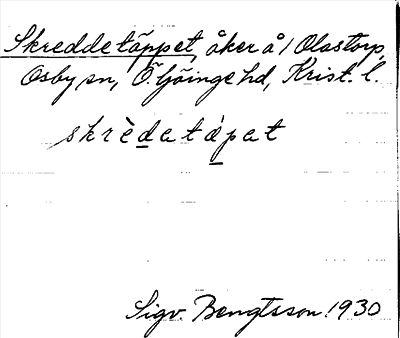 Skreddetäppet, åker å/ Olastorp,
Osby sn, Ö. Göinge hd, Krist. l.
skrèdetápet
Sigv. Bengtsson 1930